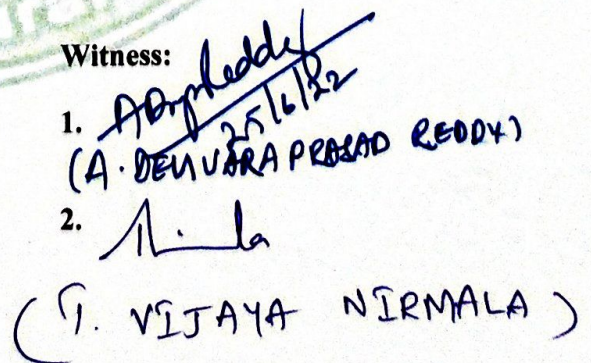 Witness:
1. ADvpReddy
25/6/22
(A. DEVIVARA PRASAD REDDY)
2.
(T. VIJAYA NIRMALA)